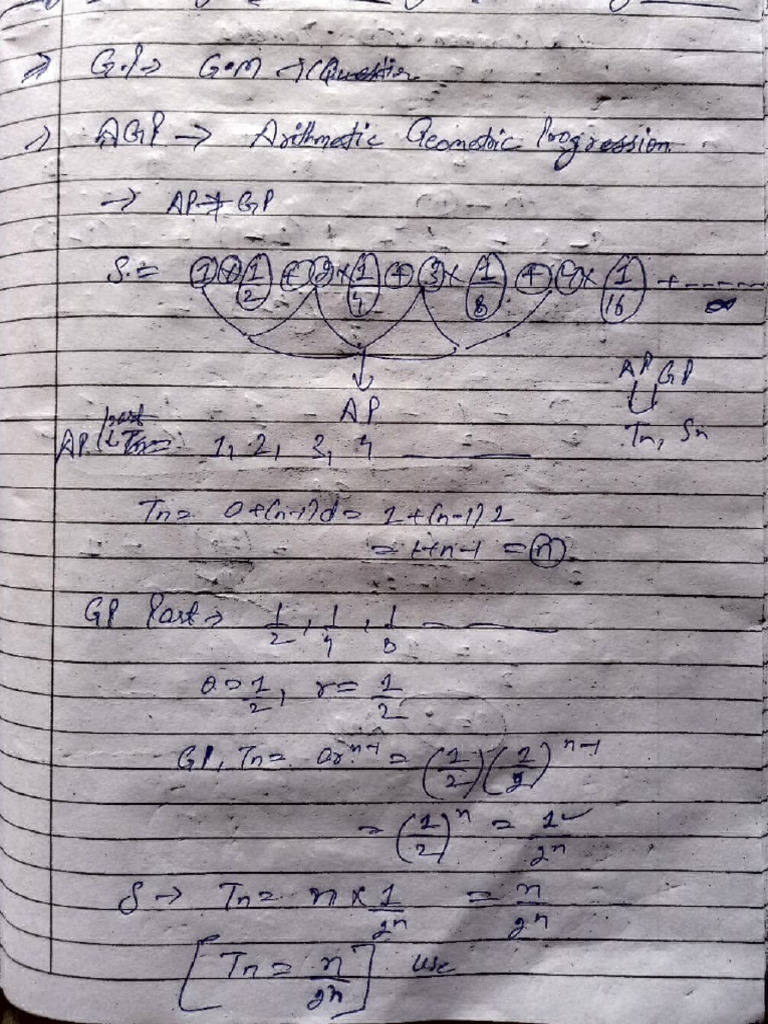 ⇒ G.P → G.M → Question
→ AGP → Arithmetic Geometric Progression
→ AP ≠ GP
S = 1 × 1/2 + 2 × 1/4 + 3 × 1/8 + 4 × 1/16 + ----- ∞
AP GP
AP
Tn, Sn
AP part Tn = 1, 2, 3, 4 __ __
Tn = a+(n-1)d = 1+(n-1)1
= 1+n-1 = n
GP Part → 1/2, 1/4, 1/8 __ __
a = 1/2, r = 1/2
GP, Tn = ar^n-1 = (1/2)(1/2)^n-1
= (1/2)^n = 1/2^n
S → Tn = n × 1/2^n = n/2^n
[Tn = n/2^n] use